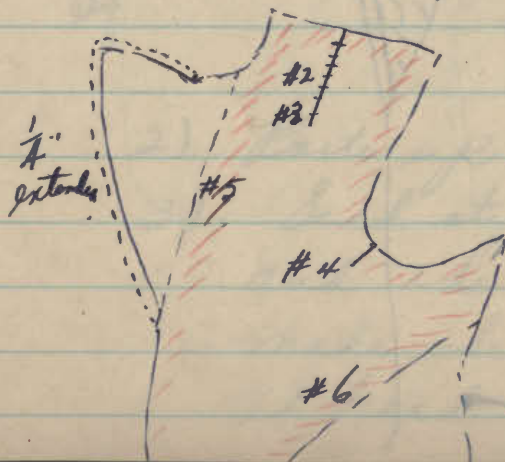 #2
#3
1/4"
extended
#5
#4
#6